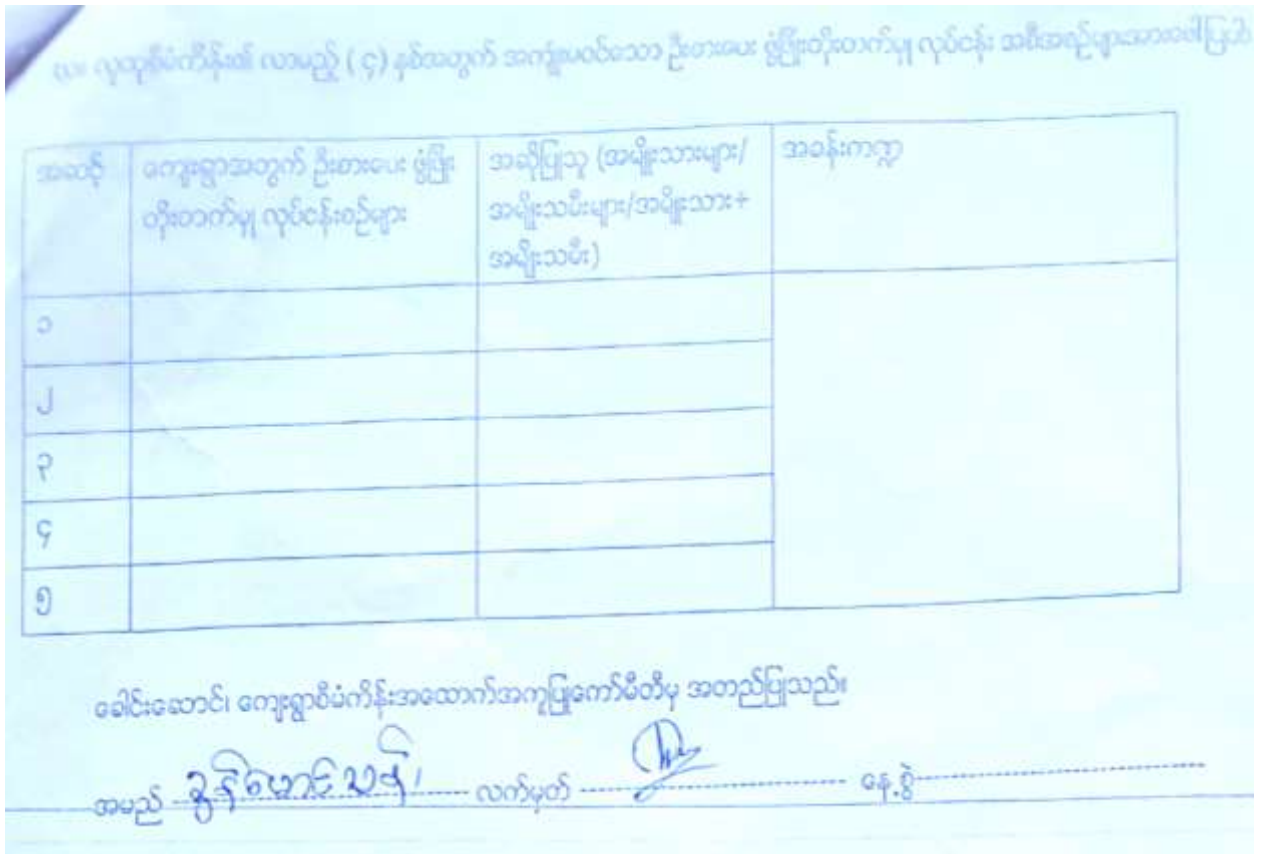 လူထုစီမံကိန်း၏ လာမည့် (၄) နှစ်အတွက် အကျုံးဝင်သော ဦးစားပေး ဖွံ့ဖြိုးတိုးတက်မှု လုပ်ငန်း အစီအစဉ်များအား
အဆင့်
ကျေးရွာအတွက် ဦးစားပေး ဖွံ့ဖြိုး
တိုးတက်မှု လုပ်ငန်းစဉ်များ
အဆိုပြုသူ (အမျိုးသားများ/
အမျိုးသမီးများ/အမျိုးသား+
အမျိုးသမီး)
အခန်းကဏ္ဍ
၁
၂
၃
၄
၅
ခေါင်းဆောင်၊ ကျေးရွာစီမံကိန်းအထောက်အကူပြုကော်မီတီမှ အတည်ပြုသည်။
အမည် ခွန်မောင်သန်း လက်မှတ် နေ့စွဲ